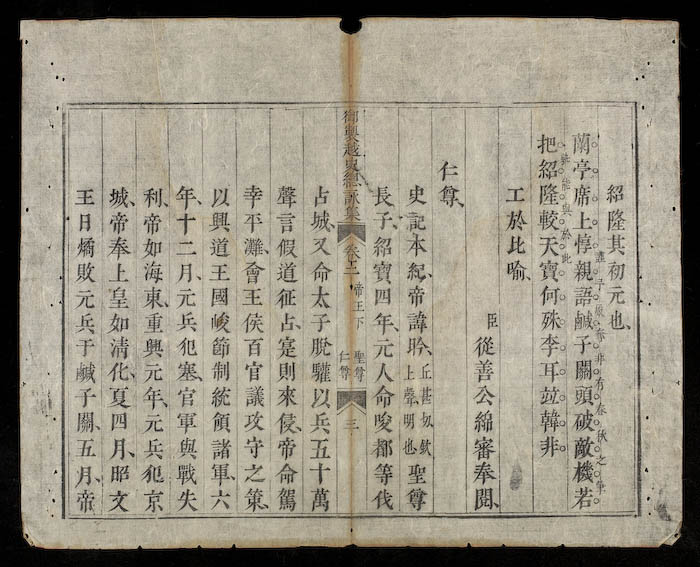 紹隆其初元也
蘭亭席上惇親語鹹子關頭破敵機若
把紹隆較天寶何殊李耳竝韓非
工於比喻
臣從善公綿審奉閱
仁尊
史記本紀帝諱昑丘甚切欽上聲明也聖尊
長子紹寶四年元人命唆都等伐
御製越史總詠集 卷二 帝王下 聖尊 仁尊 三
占城又命太子脫驩以兵五十萬
聲言假道征占寔則來侵帝命駕
幸平灘會王侯百官議攻守之策
以興道王國峻節制統領諸軍六
年十二月元兵犯塞官軍與戰失
利帝如海東重興元年元兵犯京
城帝奉上皇如清化夏四月昭文
王日燏敗元兵于鹹子關五月帝